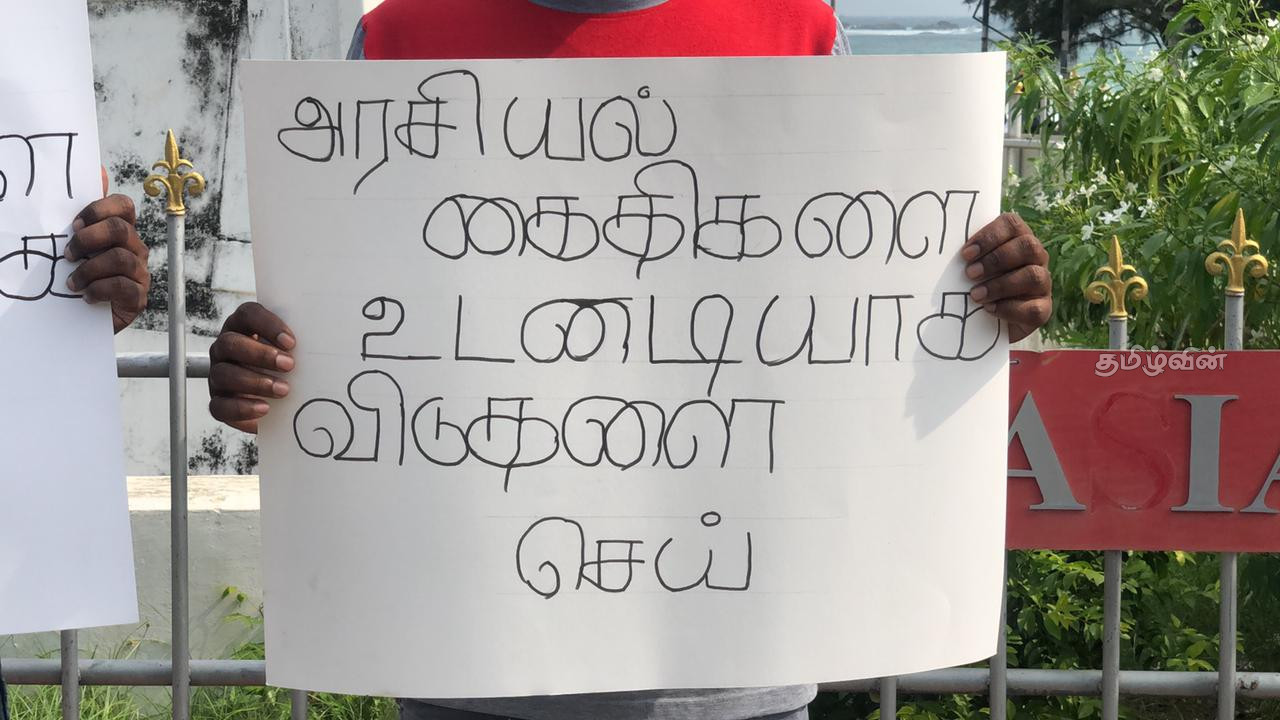 அரசியல்
கைதிகளை
உடனடியாக
விடுதளை
செய்
தமிழ்வின்
ASIA